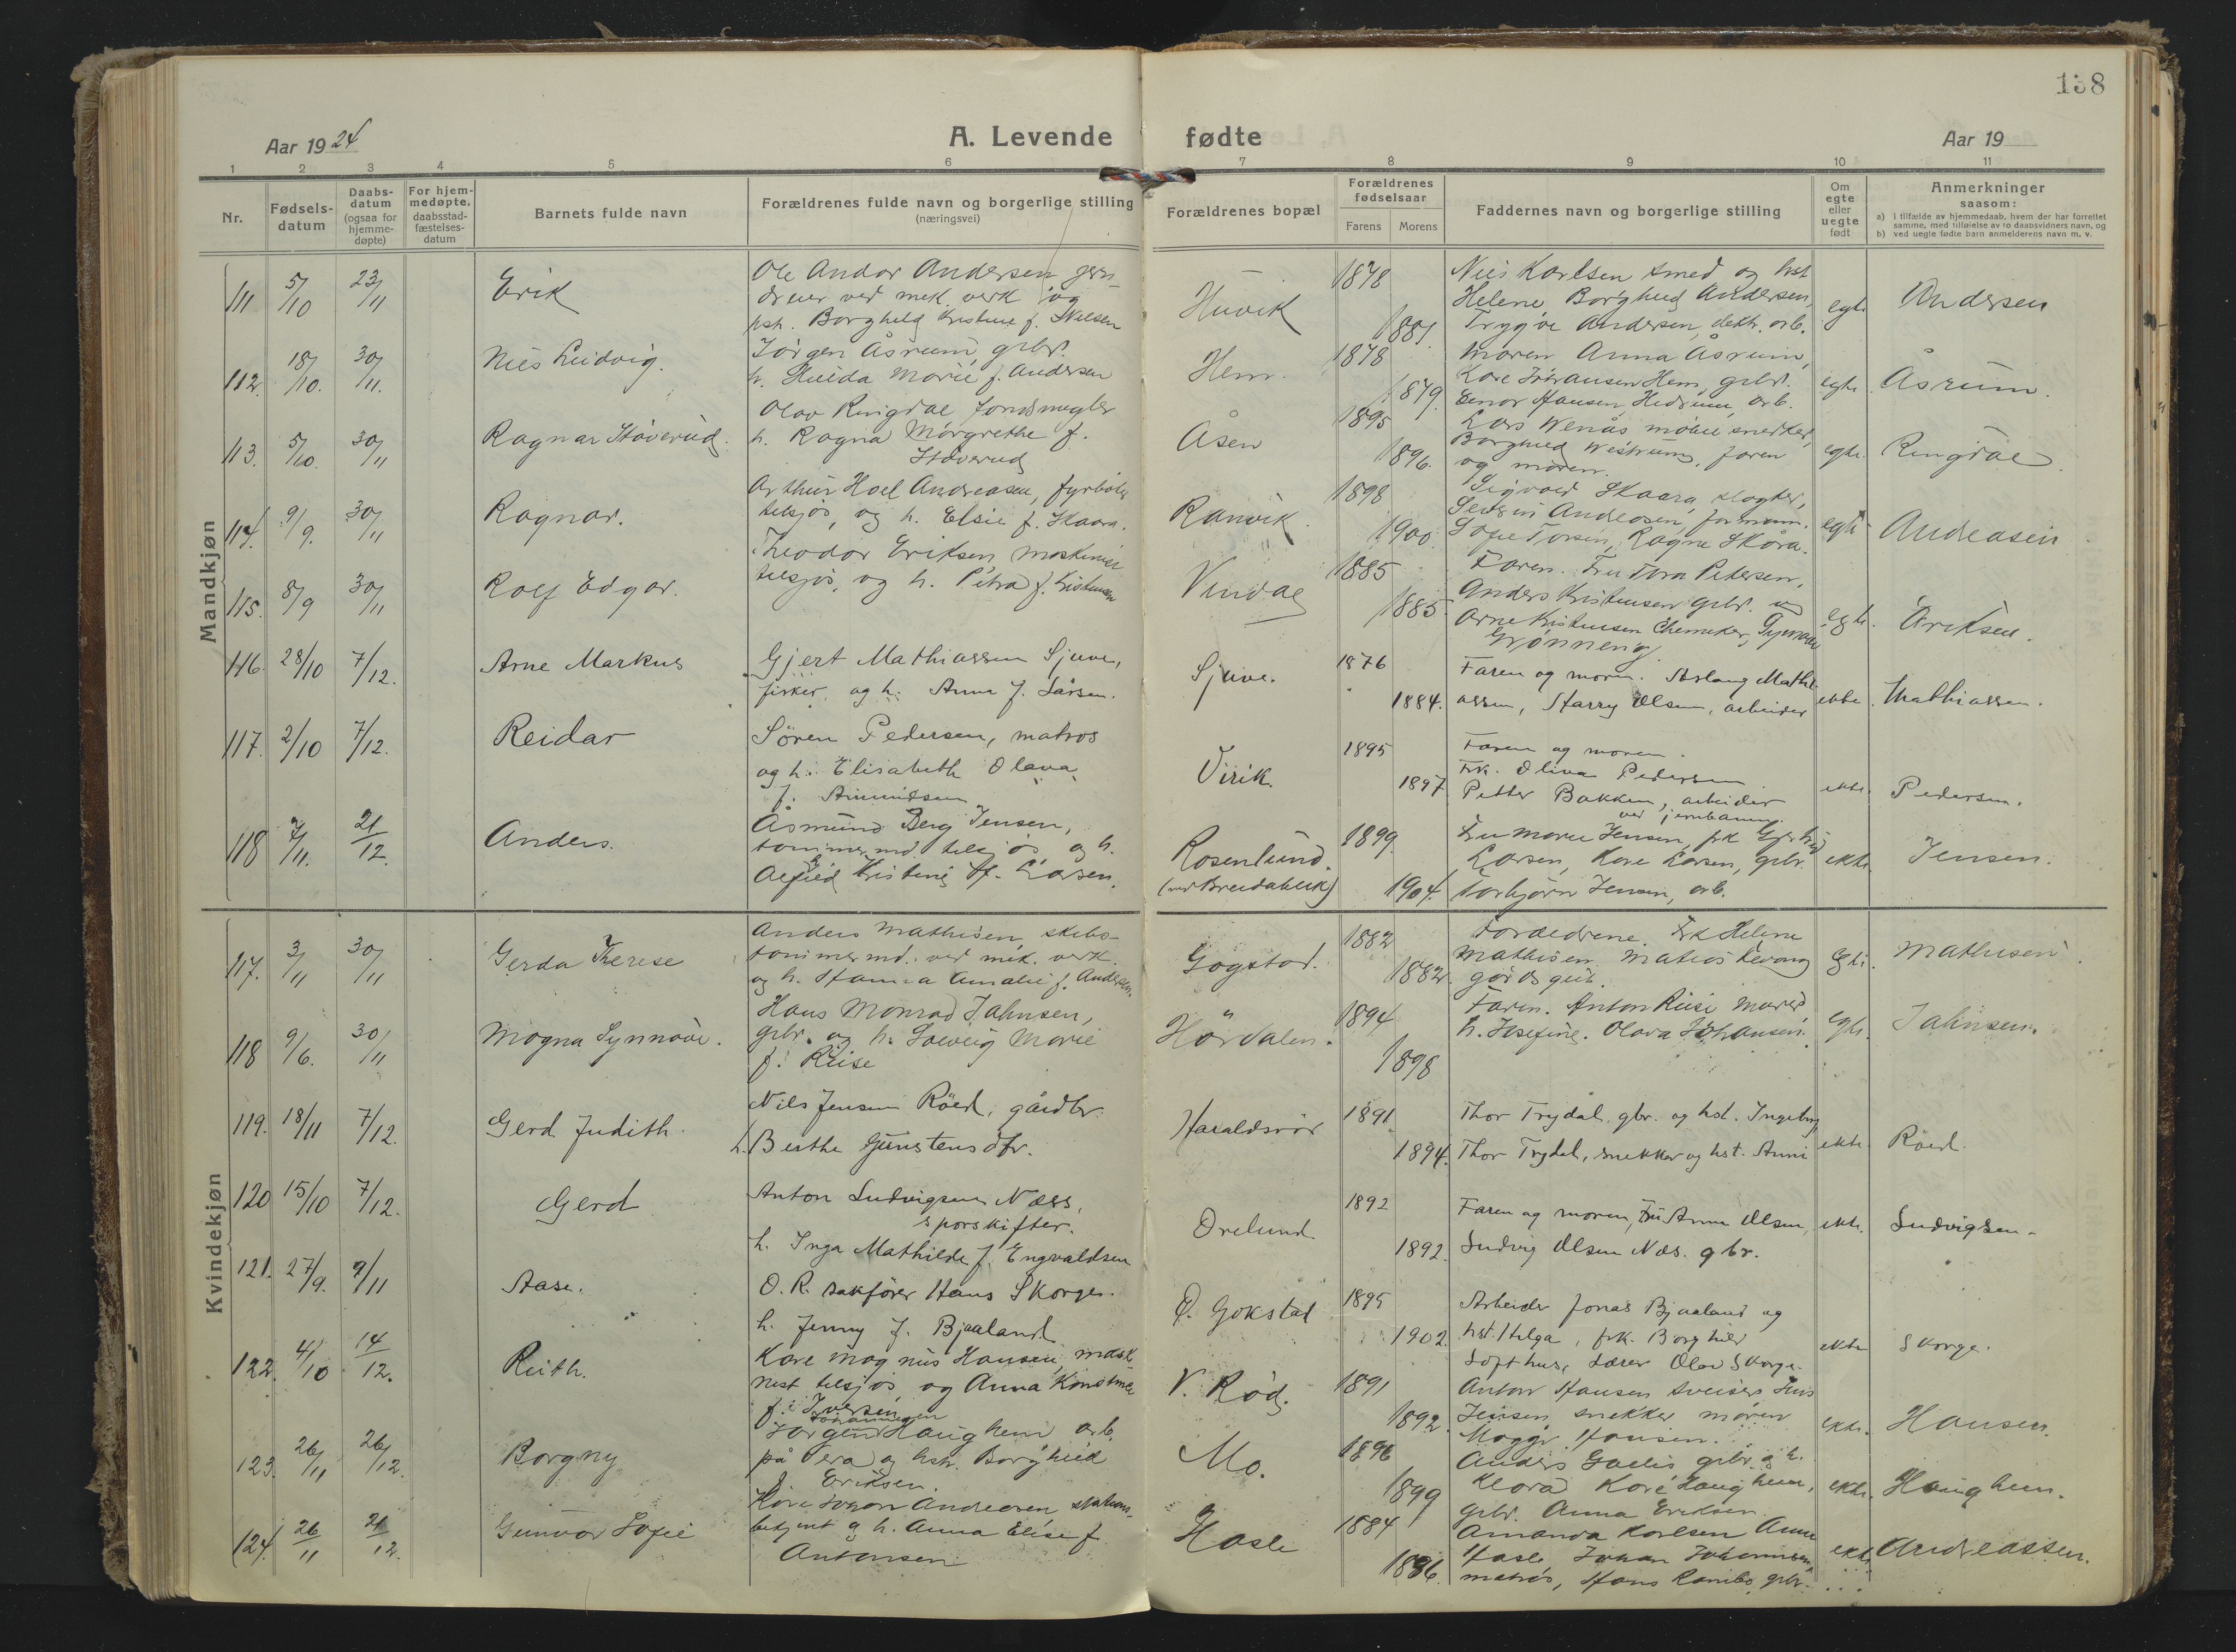 138
Aar 1924
A. Levende fødte
Aar 19
1 2 3 4 5 6 7 8 9 10 11
Nr.
Fødsels-
datum
Daabs-
datum
(ogsaa for
hjemme-
døpte)
For hjem-
medøpte.
daabsstad-
fæstelses-
datum
Barnets fulde navn
Forældrenes fulde navn og borgerlige stilling
(næringsvei)
Forældrenes bopæl
Forældrenes
fødselsaar
Farens Morens
Faddernes navn og borgerlige stilling
Om
egte
eller
uegte
født
Anmerkninger
saasom:
a) i tilfælde av hjemmedaab, hvem der har forrettet
samme, med tilføielse av to daabsvidners navn, og
b) ved uegte fødte barn anmelderens navn m. v.
Mandkjøn
111 5/10 23/11 Erik
Ole Andor Andersen
ved mek. verk og
Borghild Kristine f. Nilsen
Huvik
1878
1881
Nils Karlsen smed og hst
Helene Borghild Andersen,
Trygve Andersen, elektr. arb.
egte Andersen
112. 18/10. 30/11. Nils Ludvig.
Jørgen Åsrum, grbr.
h. Hulda Marie f. Andersen
Hem.
1878
1879
Moren Anna Åsrum,
Kåre Johansen Hem, grbr.
Einar Hansen, Hedrum, arb.
egte Åsrum.
113. 5/10. 30/11 Ragnar Støverud.
Olav Ringdal fondsmegler
h. Ragna Margrethe f.
Støverud
Åsen
1895
1896.
Lars Wenås møbelsnedker,
Borghild Westrum, faren
og moren.
egte. Ringdal.
114. 9/9. 30/11 Ragnar.
Arthur Hoel Andreasen, fyrbøter
tilsjøs, og h. Elsie f. Skaara.
Ranvik.
1898
1900.
Sigvald Skaara, slagter,
Andreasen, formann.
Sofie Torsen, Ragna Skåra.
egte Andreasen.
115. 8/9 30/11 Rolf Edgar.
Theodor Eriksen, maskinist
tilsjøs, og h. Petra f. Kristensen
Vindal
1885
1885
Faren. Fru Tora Petersen,
Anders Kristensen grbr. og
Arne Kristensen Chemiker,
Grønneng.
egte. Eriksen.
116. 28/10 7/12. Arne Markus
Gjert Mathiassen Sjuve,
fisker, og h. Anna f. Larsen.
Sjuve.
1876
1884.
Faren og moren. Aslaug Mathi-
assen, Harry Olsen, arbeider
ekte. Mathiassen.
117. 2/10 7/12. Reidar
Søren Pedersen, matros
og h. Elisabeth Olava
f. Amundsen
Virik.
1895
1897
Faren og moren.
Frk. Oliva Pedersen
Petter Bakken, arbeider
ved jernbanen.
ekte Pedersen.
118 2/11. 21/12. Anders.
Åsmund Berg Jensen,
tømmermd. tilsjøs og h.
Alfhild Kristine f. Larsen.
Rosenlund.
(ved Breidablik)
1899
1904.
Fru Marie Jensen, frk Gjertrud
Larsen, Kåre Larsen, grbr.
Torbjørn Jensen, arb.
ekte. Jensen.
Kvindekjøn
117. 3/11 30/11 Gerda Therese
Anders Mathisen skibs-
tømmermd. ved mek. verk.
og h. Hanna Amalie f. Andersen.
Gogstad.
1882
1882.
Forældrene. Frk Helene
Mathisen. Matros
gårdsgut.
Egte. Mathisen.
118 9/6. 30/11 Magna Synnøve.
Hans Monrad Jahnsen,
grbr. og h. Solveig Marie
f. Riise
Hördalen.
1894
1898
Faren. Anton Riise
h. Josefine. Olava Johansen.
egte. Jahnsen.
119. 18/11 7/12. Gerd Judith.
Nils Jensen Röed, gårdbr.
h. Berthe Gunstensdtr.
Haraldsrör
1891
1894.
Thor Trydal. gbr. og hst. Ingeborg
Thor Trydal, snekker og hst. Anni
ekte Röed.
120 15/10 7/12. Gerd
Anton Ludvigsen Næss,
sporskifter.
h. Inga Mathilde f. Engvaldsen
Orelund.
1892
1892.
Faren og moren, Fru Anna Olsen,
Ludvig Olsen Næs. gbr.
ekte. Ludvigsen.
121. 27/9. 9/11 Aase.
O. R. sakfører Hans Skorge.
h. Jenny f. Bjaaland
Ö. Gokstad
1895
1902.
Arbeider Jonas Bjaaland og
hst. Helga, frk. Borghild
Lofthus, Lærer Olav Skorge
ekte Skorge.
122. 4/10 14/12. Ruth.
Kåre Magnus Hansen, maski-
nist tilsjøs, og Anna Konstanse
f. Iversen
V. Röd.
1891
1892.
Anton Hansen sveiser, Jens
Jensen, snekker moren
Hansen.
ekte. Hansen.
123. 26/11 26/12. Borgny
Johannesen
Jørgen Haughem arb.
på Vera og hst. Borghild
Eriksen.
Mo.
1896
1899
Anders grbr. og h.
Klara Kåre Haughem,
grbr. Anna Eriksen
ekte. Haughem.
124. 26/11 21/12. Gunvor Sofie
Kåre Johan Andreasen stations-
betjent og h. Anna Elise f
Antonsen
Hasle
1884
1886.
Amanda Karlsen Anna
Hasle, Johan Johannesen
matros, Hans Rambo, grbr.
ekte Andreassen.